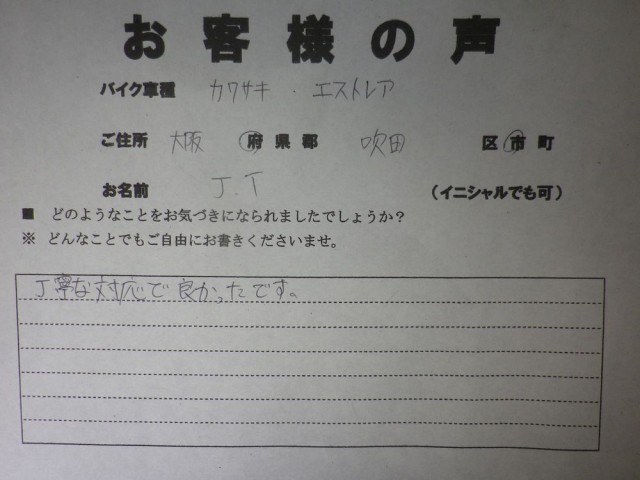 お客様の声
バイク車種 カワサキ・エストレア
ご住所 大阪 府県郡 吹田 区市町
お名前 J.T (イニシャルでも可)
■ どのようなことをお気づきになられましたでしょうか？
※ どんなことでもご自由にお書きくださいませ。
丁寧な対応で良かったです。